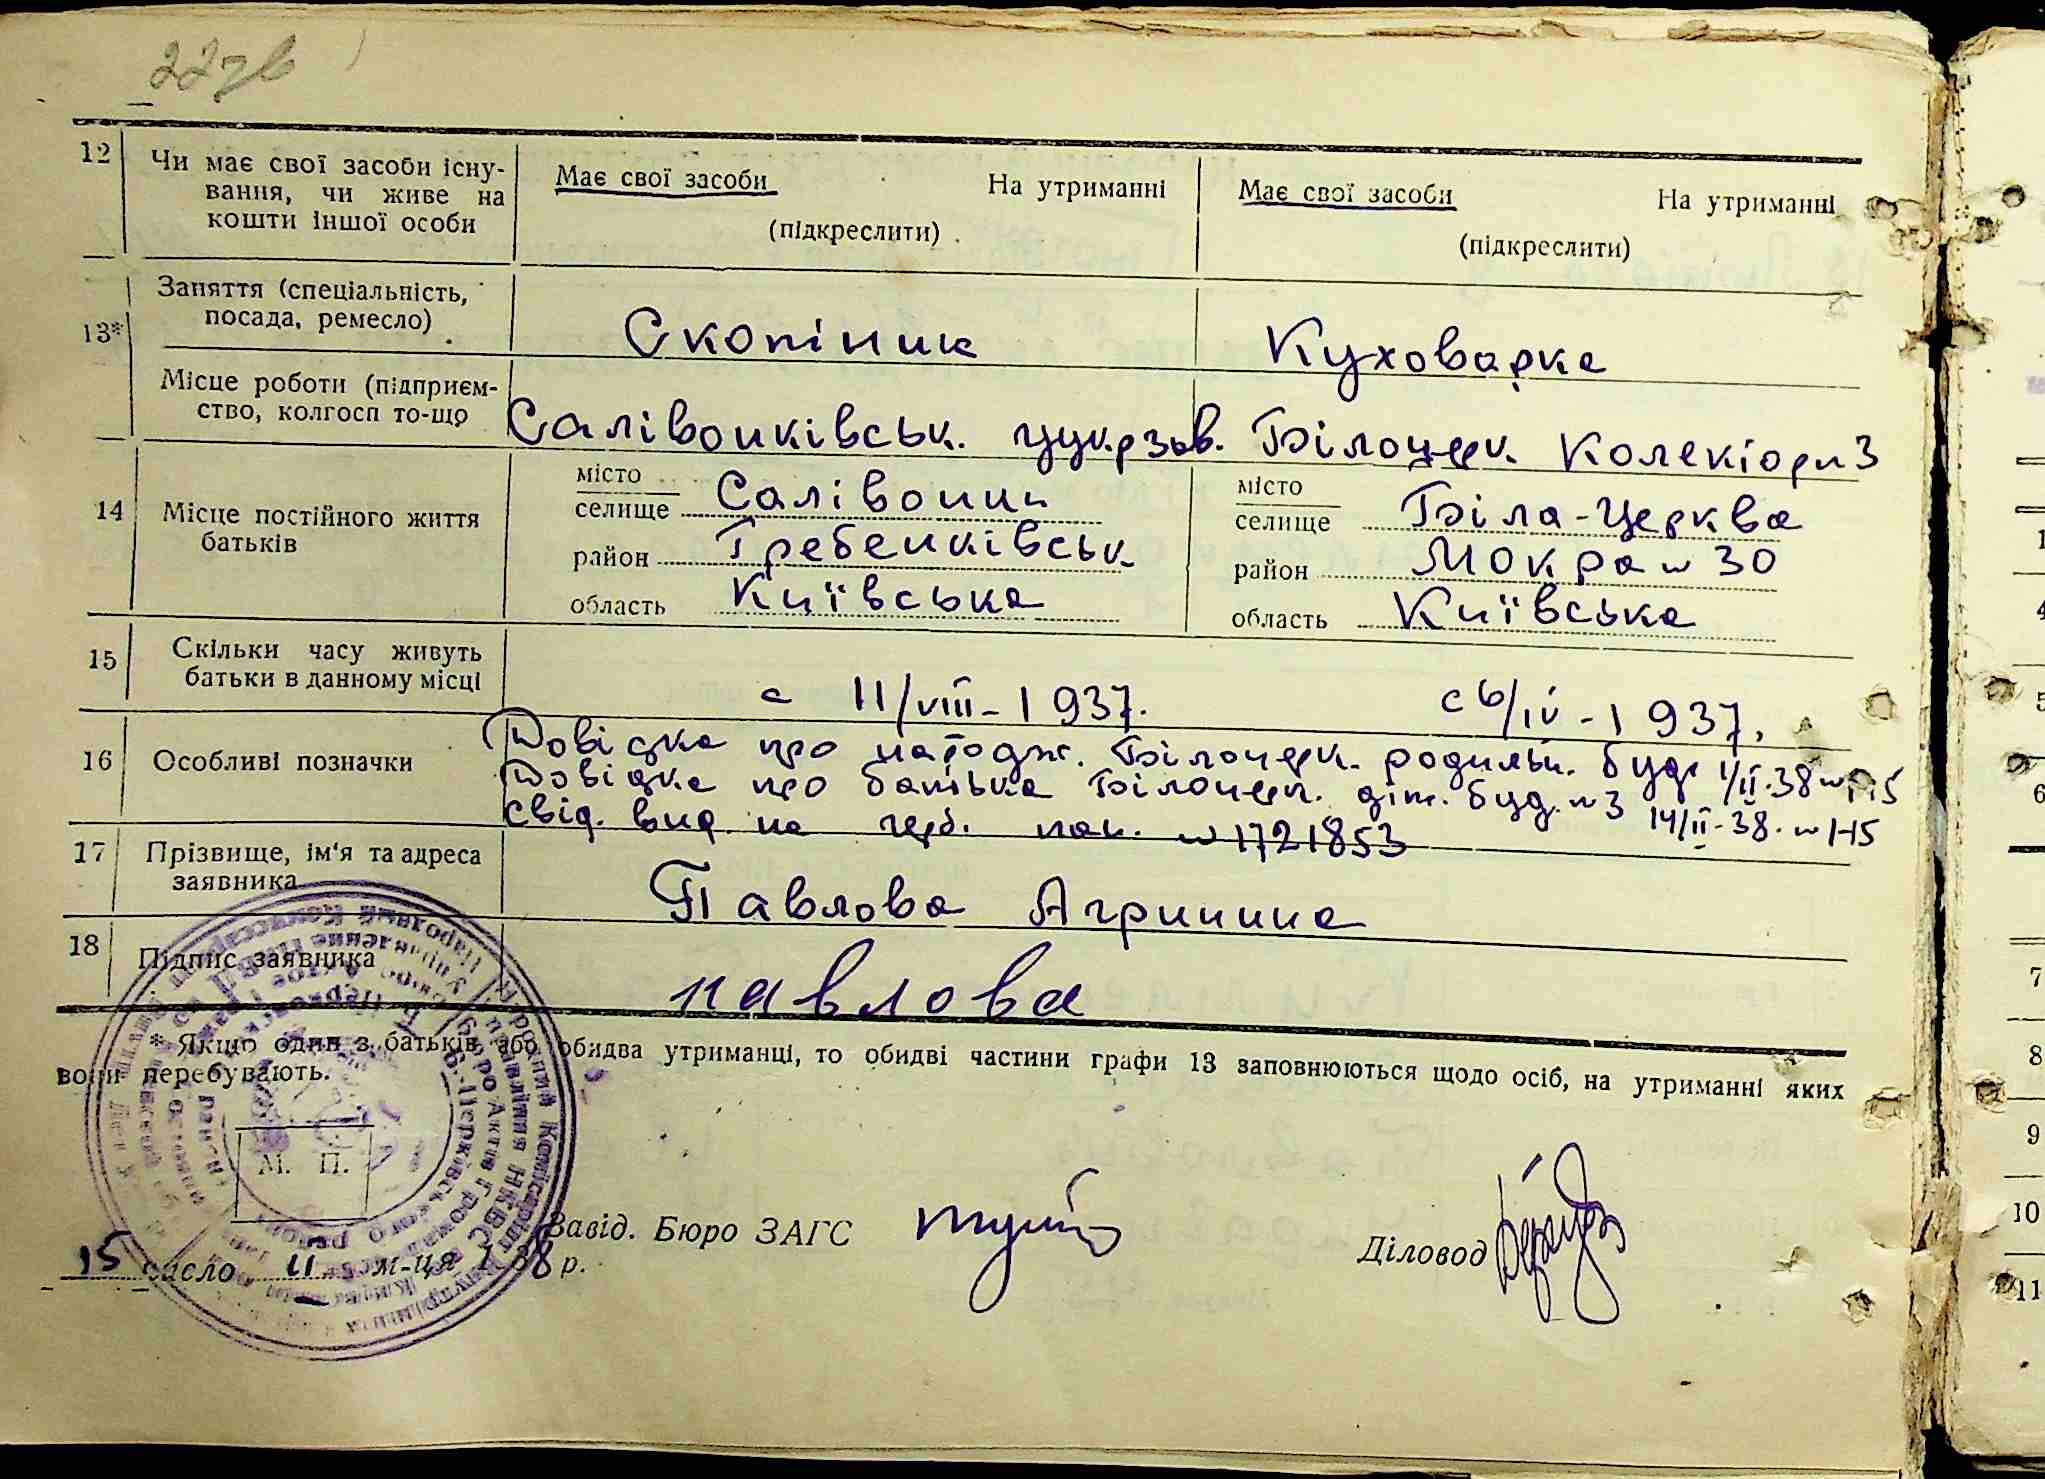 227в
12 Чи має свої засоби існу- Має свої засоби На утриманні Має свої засоби На утриманні
вання, чи живе на
кошти іншої особи (підкреслити) (підкреслити)
13* Заняття (спеціальність,
посада, ремесло) Скотіник Куховарка
Місце роботи (підприєм-
ство, колгосп то-що Салівонківськ. цукрзав. Білоцерк. Колекіор №3
14 Місце постійного життя
батьків
місто місто
селище Салівонки селище Біла-Церква
район Гребенківськ район Мокра № 30
область Київська область Київська
15 Скільки часу живуть
батьки в данному місці с 11/VIII-1937. с 6/IV-1937.
16 Особливі позначки Довідка про народж. Білоцерк. родильн. буд. 1/II.38 № 115
Довідка про батька Білоцерк. діт. буд. №3 14/II-38. № 1-15
свід. вид. на герб. пап. № 1721853
17 Прізвище, ім'я та адреса
заявника Павлова Агрипина
18 Підпис заявника павлова
* Якщо один з батьків або обидва утриманці, то обидві частини графи 13 заповнюються щодо осіб, на утриманні яких
вони перебувають.
М. П.
Завід. Бюро ЗАГС Діловод
15 число II м-ця 1938 р.